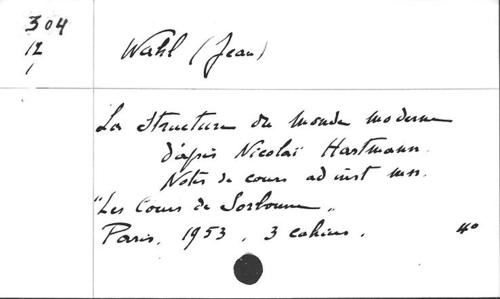 304
12
1
Wahl (Jean)
La structure du monde moderne
d'après Nicolaï Hartmann.
Notes de cours ad inst mn.
"Les Cours de Sorbonne"
Paris, 1953, 3 cahiers. 4°